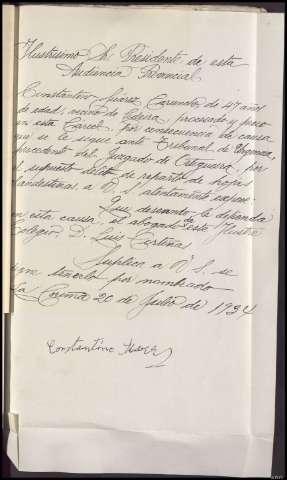 Ilustrísimo Sr. Presidente de esta
Audiencia Provincial
Constantino Suárez Caruncho de 47 años
de edad, vecino de Cedeira, procesado y preso
en esta Carcel, por consecuencia de causa
que se le sigue ante Tribunal de Urgencia,
procedente del Juzgado de Ortigueira, por
el supuesto delito de reparto de hojas
clandestinas, a V. S. atentamente expone:
Que deseando le defienda
en esta causa, el abogado de este Ilustre
Colegio, D. Luis Cortiñas
Suplica a V. S. se
digne tenerlo por nombrado
La Coruña 20 de Julio de 1934
Constantino Suárez